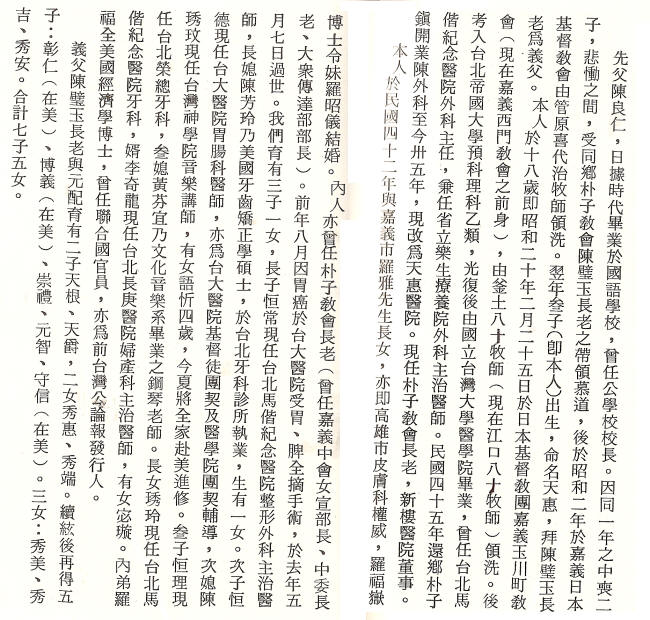 先父陳良仁，日據時代畢業於國語學校，曾任公學校校長。因同一年之中喪二
子，悲慟之間，受同鄉朴子敎會陳璧玉長老之帶領慕道，後於昭和二年於嘉義日本
基督敎會由管原喜代治牧師領洗。翌年叁子（卽本人）出生，命名天惠，拜陳璧玉長
老爲義父。本人於十八歲卽昭和二十年二月二十五日於日本基督敎團嘉義玉川町敎
會（現在嘉義西門敎會之前身），由釜土八十牧師（現在江口八十牧師）領洗。後
考入台北帝國大學預科理科乙類，光復後由國立台灣大學醫學院畢業，曾任台北馬
偕紀念醫院外科主任，兼任省立樂生療養院外科主治醫師。民國四十五年還鄉朴子
鎭開業陳外科至今卅五年，現改爲天惠醫院。現任朴子敎會長老，新樓醫院董事。
本人於民國四十二年與嘉義市羅雅先生長女，亦卽高雄市皮膚科權威，羅福嶽
博士令妹羅昭儀結婚。內人亦曾任朴子敎會長老（曾任嘉義中會女宣部長、中委長
老、大衆傳達部部長）。前年八月因胃癌於台大醫院受胃、脾全摘手術，於去年五
月七日過世。我們育有三子一女，長子恒常現任台北馬偕紀念醫院整形外科主治醫
師，長媳陳芳玲乃美國牙齒矯正學碩士，於台北牙科診所執業，生有一女。次子恒
德現任台大醫院胃腸科醫師，亦爲台大醫院基督徒團契及醫學院團契輔導，次媳陳
琇玟現任台灣神學院音樂講師，有女語忻四歲，今夏將全家赴美進修。叁子恒理現
任台北榮總牙科，叁媳黃芬宜乃文化音樂系畢業之鋼琴老師。長女琇玲現任台北馬
偕紀念醫院牙科，婿李奇龍現任台北長庚醫院婦產科主治醫師，有女宓璇。內弟羅
福全美國經濟學博士，曾任聯合國官員，亦爲前台灣公論報發行人。
義父陳璧玉長老與元配育有二子天根、天爵，二女秀惠、秀端。續絃後再得五
子：彰仁（在美）、博義（在美）、崇禮、元智、守信（在美）。三女：秀美、秀
吉、秀安。合計七子五女。